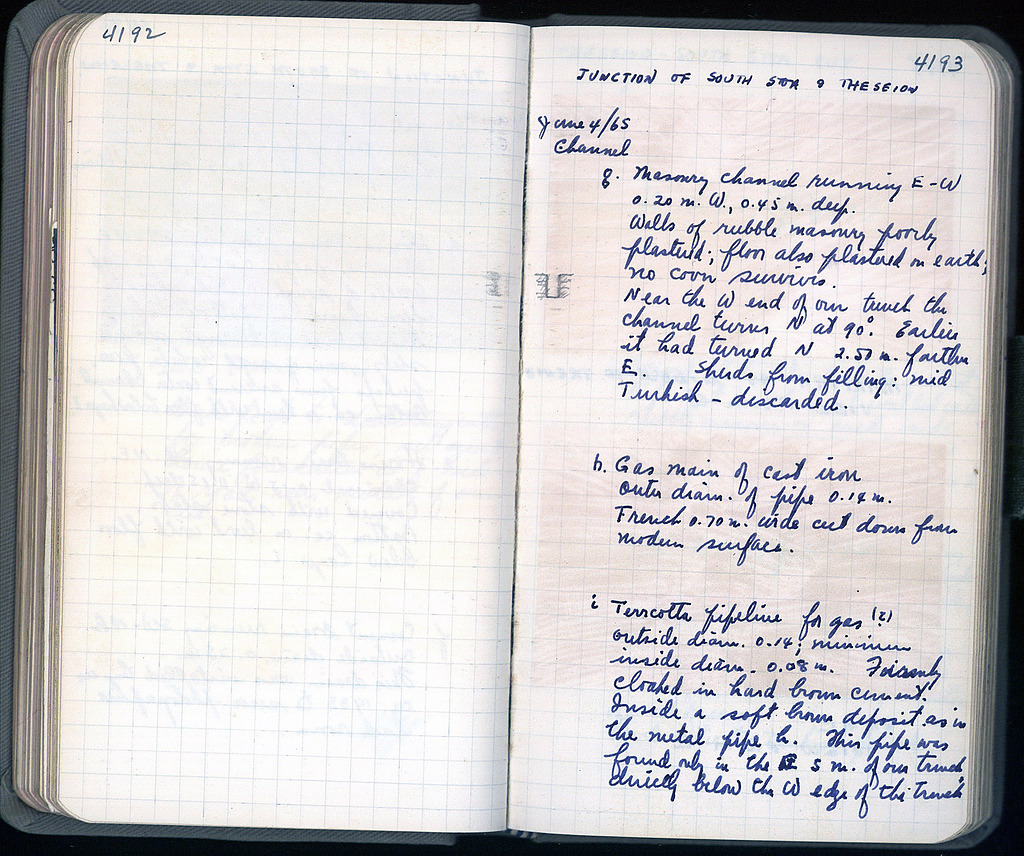 4192
4193
JUNCTION OF SOUTH STOA & THESEION
June 4/65
Channel
g. Masonry channel running E-W
0.20 m. W., 0.45 m. deep.
Walls of rubble masonry poorly
plastered; floor also plastered on earth;
no cover survives.
Near the W end of our trench the
channel turns N at 90°. Earlier
it had turned N 2.50 m. farther
E. Sherds from filling: mid
Turkish – discarded.
h. Gas main of cast iron
Outer diam. of pipe 0.14 m.
Trench 0.70 m. wide cut down from
modern surface.
i Terrcotta pipeline for gas (?)
outside diam. 0.14; minimum
inside diam. 0.08 m. Firmly
cloaked in hard brown cement.
Inside a soft brown deposit as in
the metal pipe h. This pipe was
found only in the 5 m. of our trench
directly below the W edge of the trench